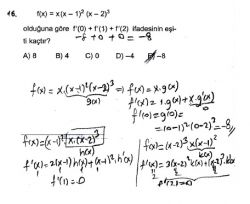 16. f(x) = x(x – 1)² (x – 2)³
olduğuna göre f'(0) + f'(1) + f'(2) ifadesinin eşi-
ti kaçtır?
-8 + 0 + 0 = -8
A) 8 B) 4 C) 0 D) –4 E) –8
f(x) = x.(x-1)²(x-2)³ ⇒ f(x) = x.g(x)
g(x)
f'(x) = 1.g(x) + x.g'(x)
0
f'(0) = g(0) =
= (0-1)²(0-2)³ = -8
f(x) = (x-1)² x.(x-2)³
h(x)
f'(x) = 2(x-1)h(x) + (x-1)².h'(x)
f'(1) = 0
f(x) = (x-2)³ x(x-1)²
k(x)
f'(x) = 3(x-2)².k(x) + (x-2)³.k'(x)
f'(2) = 0